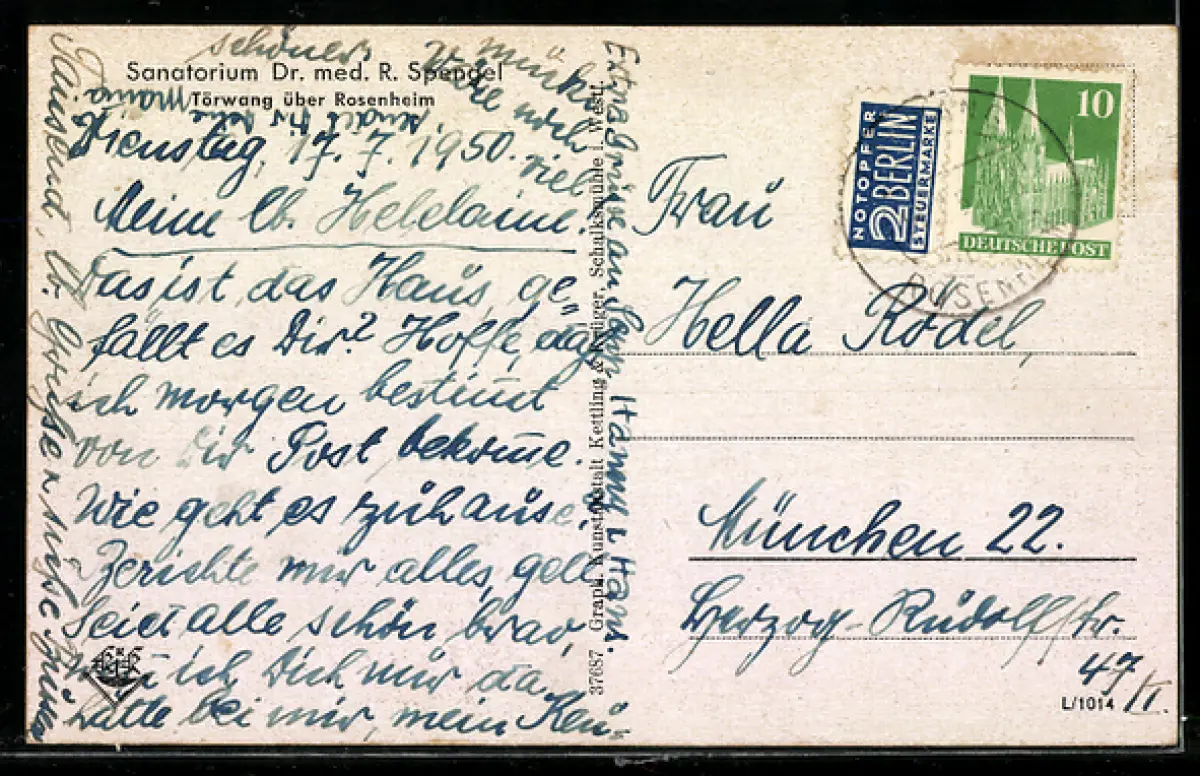 Sanatorium Dr. med. R. Spengel
Törwang über Rosenheim
Dienstag, 17. 7. 1950.
Meine lb.
Das ist das Haus, ge-
fällt es Dir? Hoffe, daß
ich morgen bestimt
von Dir Post bekome.
Wie geht es zuhause,
Berichte mir alles, gell
Seid alle schön brav,
ich Dich nur da
hätte bei mir, mein
schöner
Wäre noch
viel
Tausend lb. Grüße
Extra Grüße an
37687 Graph. Kunstanstalt Kettling & Krüger, Schalksmühle i. Westf.
NOTOPFER
2 BERLIN
STEUERMARKE
10
DEUTSCHE POST
ROSENHEIM
Frau
Hella Rödel,
München 22.
Herzog-Rudolfstr.
47/II.
L/1014